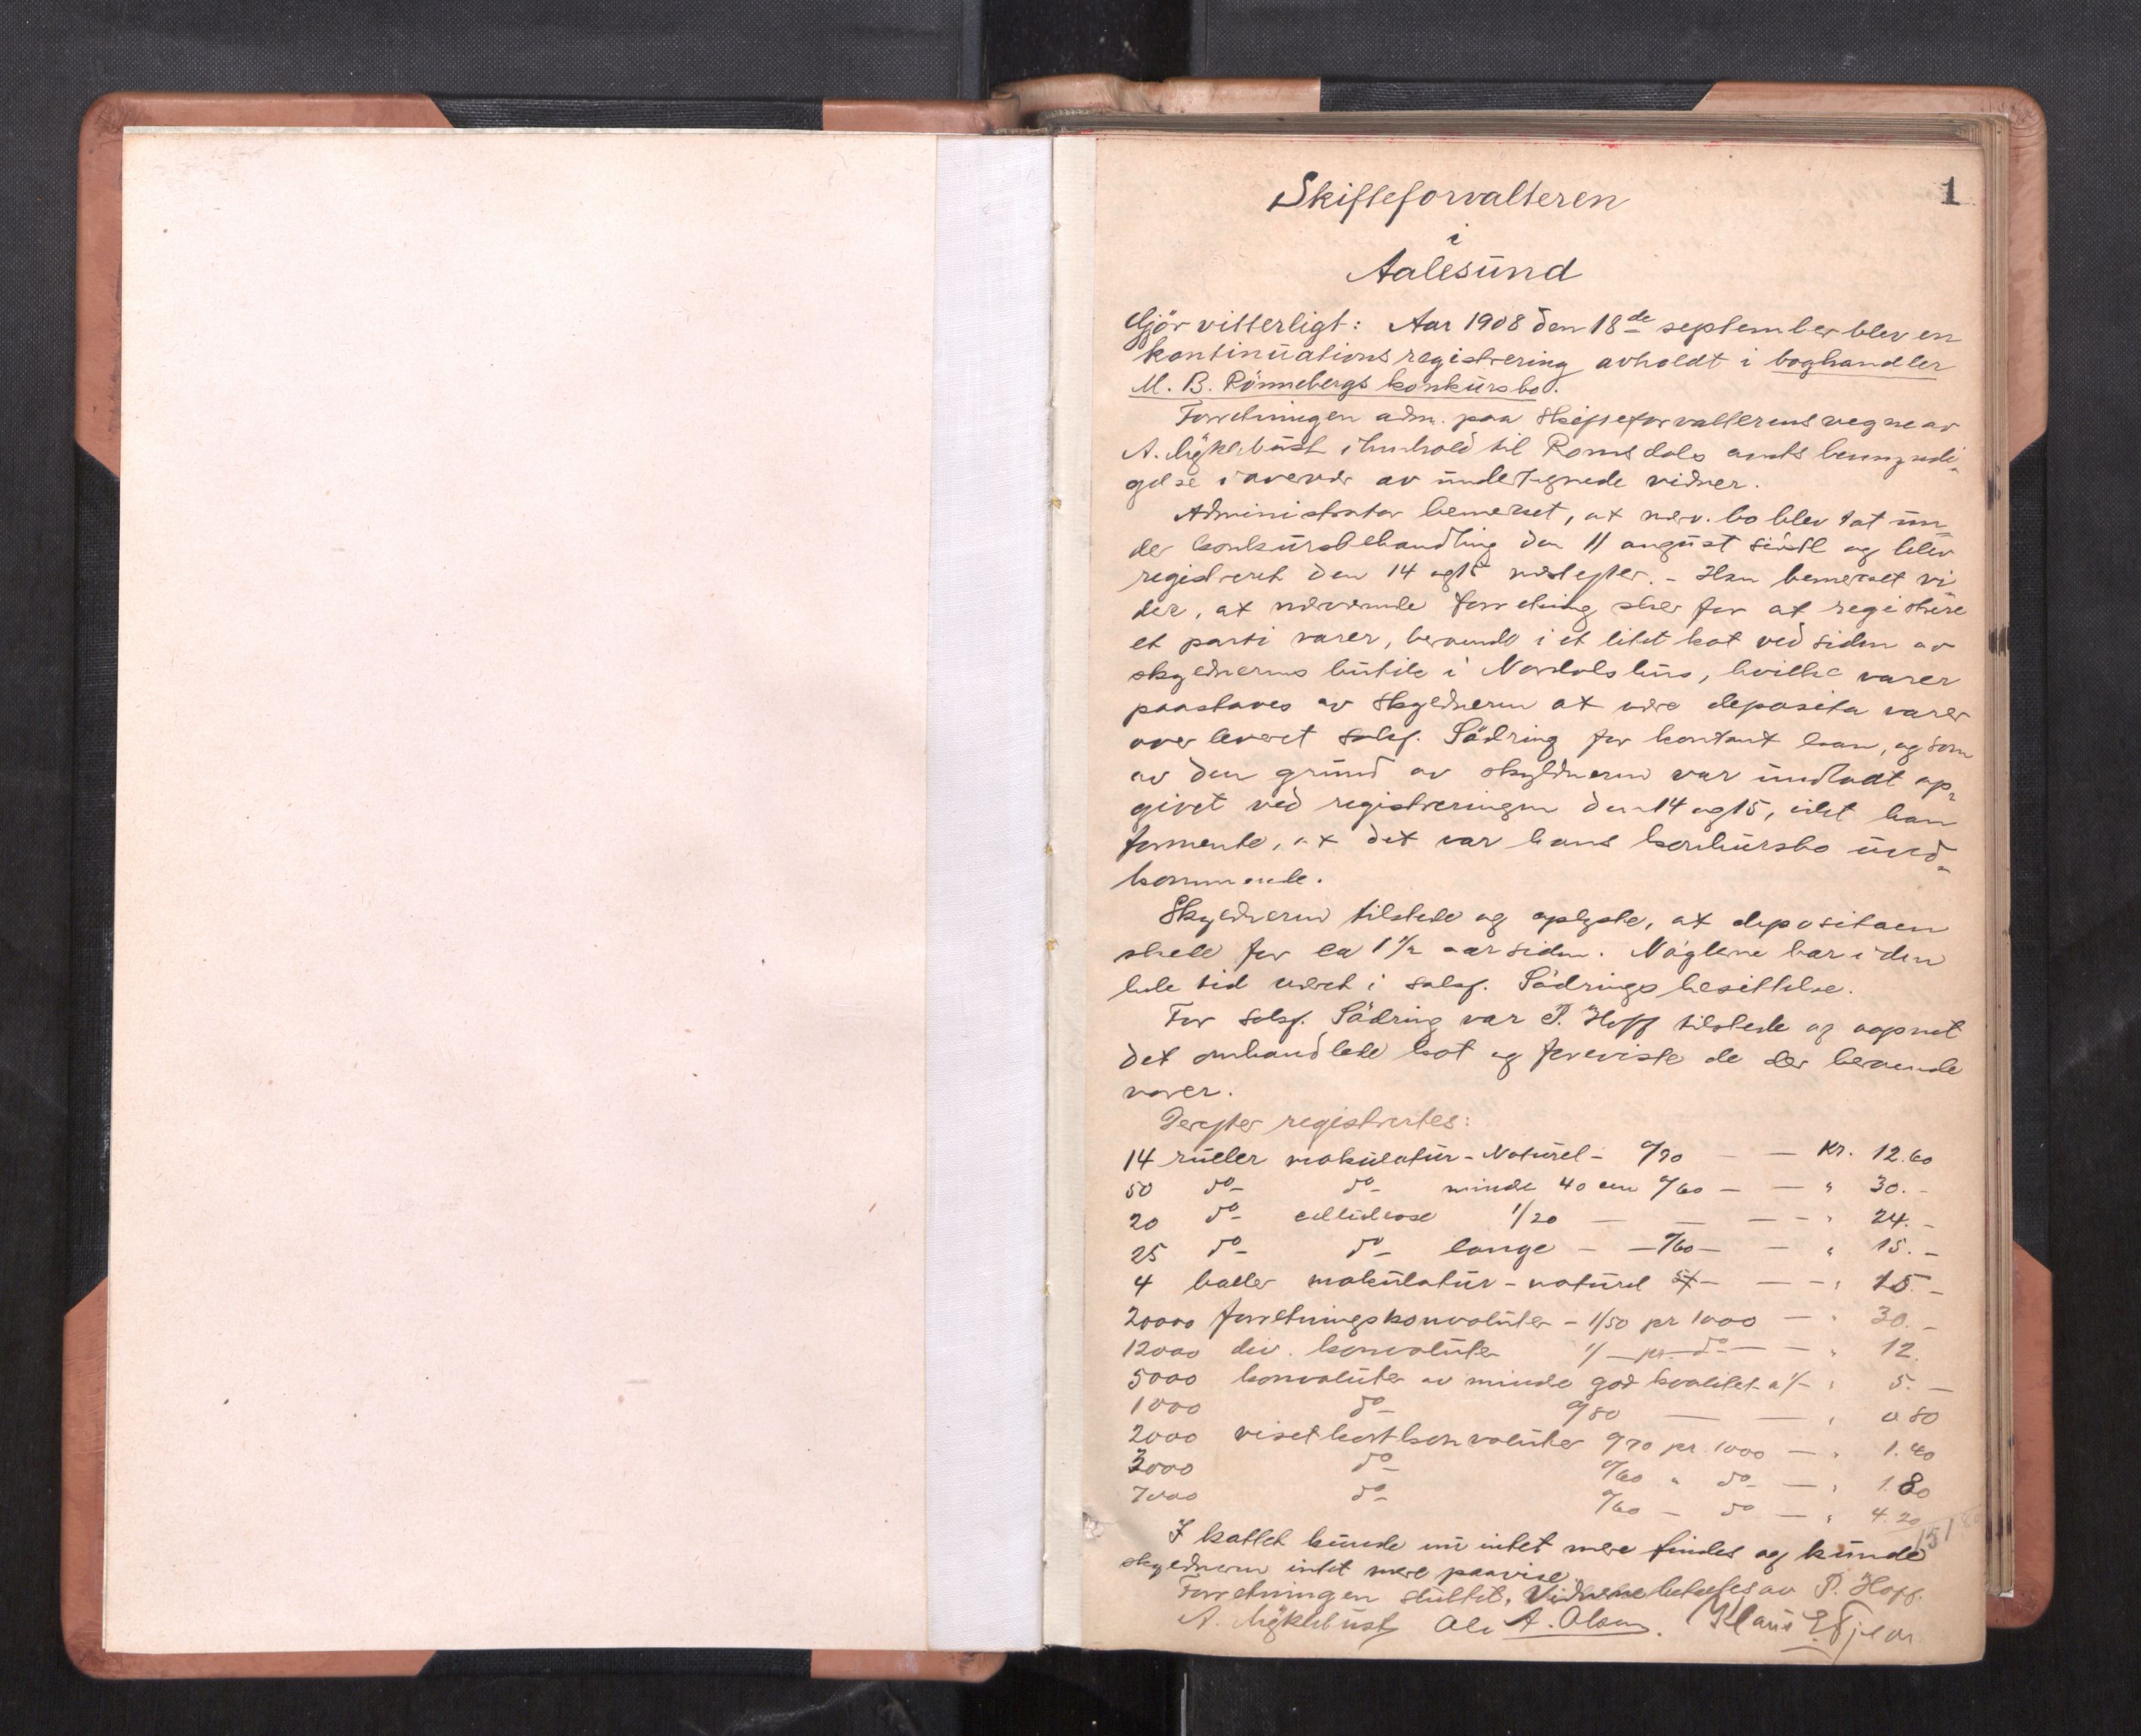 1
Skifteforvalteren
i
Aalesund
Gjör vitterligt: Aar 1908 den 18de september blev en
kontinuationsregistrering avholdt i boghandler
M. B. Rönnebergs konkursbo.
Forretningen adm. paa skifteforvalterens vegne av
A. Myklebust i henhold til Romsdals amts bemyndi-
gelse i overvær av undertegnede vidner.
Administrator bemerket, at nærv. bo blev tat un-
der konkursbehandling den 11 august sidstl og blev
registreret den 14 og 15 næstefter. - Han bemerket vi
der, at nærværende forretning sker for at registrere
et parti varer, beroende i et litet kot ved siden av
skyldnerens butik i Nordalshus, hvilke varer
paastaaes av skyldneren at være deposita varer
overleveret sakf. Södring for kontant laan, og som
av den grund av skyldneren var undladt op-
givet ved registreringen den 14 og 15, idet han
formente, at det var hans konkursbo uved-
kommende.
Skyldneren tilstede og oplyste, at depositaen
skede for ca 1 1/2 aar siden. Nöglene har i den
hele tid været i sakf. Södrings besittelse.
For sakf. Södring var P. Hoff tilstede og aapnet
det omhandlede kot og foreviste de der beroende
varer.
Derefter registrertes:
14 ruller makulatur - Naturel - 0/90 — — Kr. 12.60
50 do - do - mindre 40 cm 0/60 — — " 30. -
20 do - cellulose 1/20 — — — - " 24. -
25 do - do - lange - — 0/60 — — " 15. -
4 baller makulatur - naturel — — - " 15. -
20000 forretningskonvolutter - 1/50 pr 1000 — " 30. -
12000 div. konvolutter 1/- pr. do - — - " 12.
5000 konvolutter av mindre god kvalitet a 1/- " 5. —
1000 do - 0/80 — — " 0.80
2000 visetkortkonvolutter 0/70 pr. 1000 — " 1.40
3000 do - 0/60 " do - — " 1.80
7000 do - 0/60 - do — " 4.20
151
I kottet kunde nu intet mere findes og kunde
skyldneren intet mere paavise.
Forretningen sluttet. Vidnene betales av P. Hoff.
A. Myklebust Ole A. Olsen. Klaus